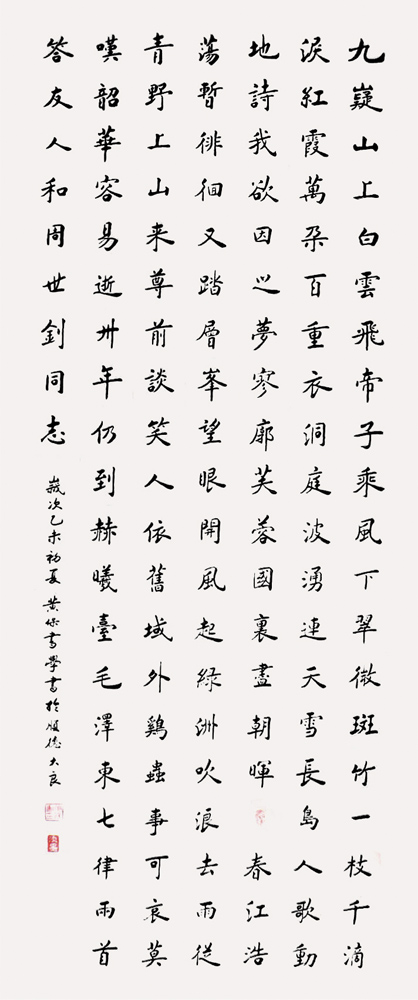 九嶷山上白雲飛帝子乘風下翠微斑竹一枝千滴
淚紅霞萬朶百重衣洞庭波湧連天雪長島人歌動
地詩我欲因之夢寥廓芙蓉國裏盡朝暉 春江浩
蕩暫徘徊又踏層峯望眼開風起綠洲吹浪去雨從
青野上山来尊前談笑人依舊域外鷄蟲事可哀莫
嘆韶華容易逝卅年仍到赫曦臺毛澤東七律兩首
答友人和周世釗同志
歲次乙未初夏黄學書於順德大良